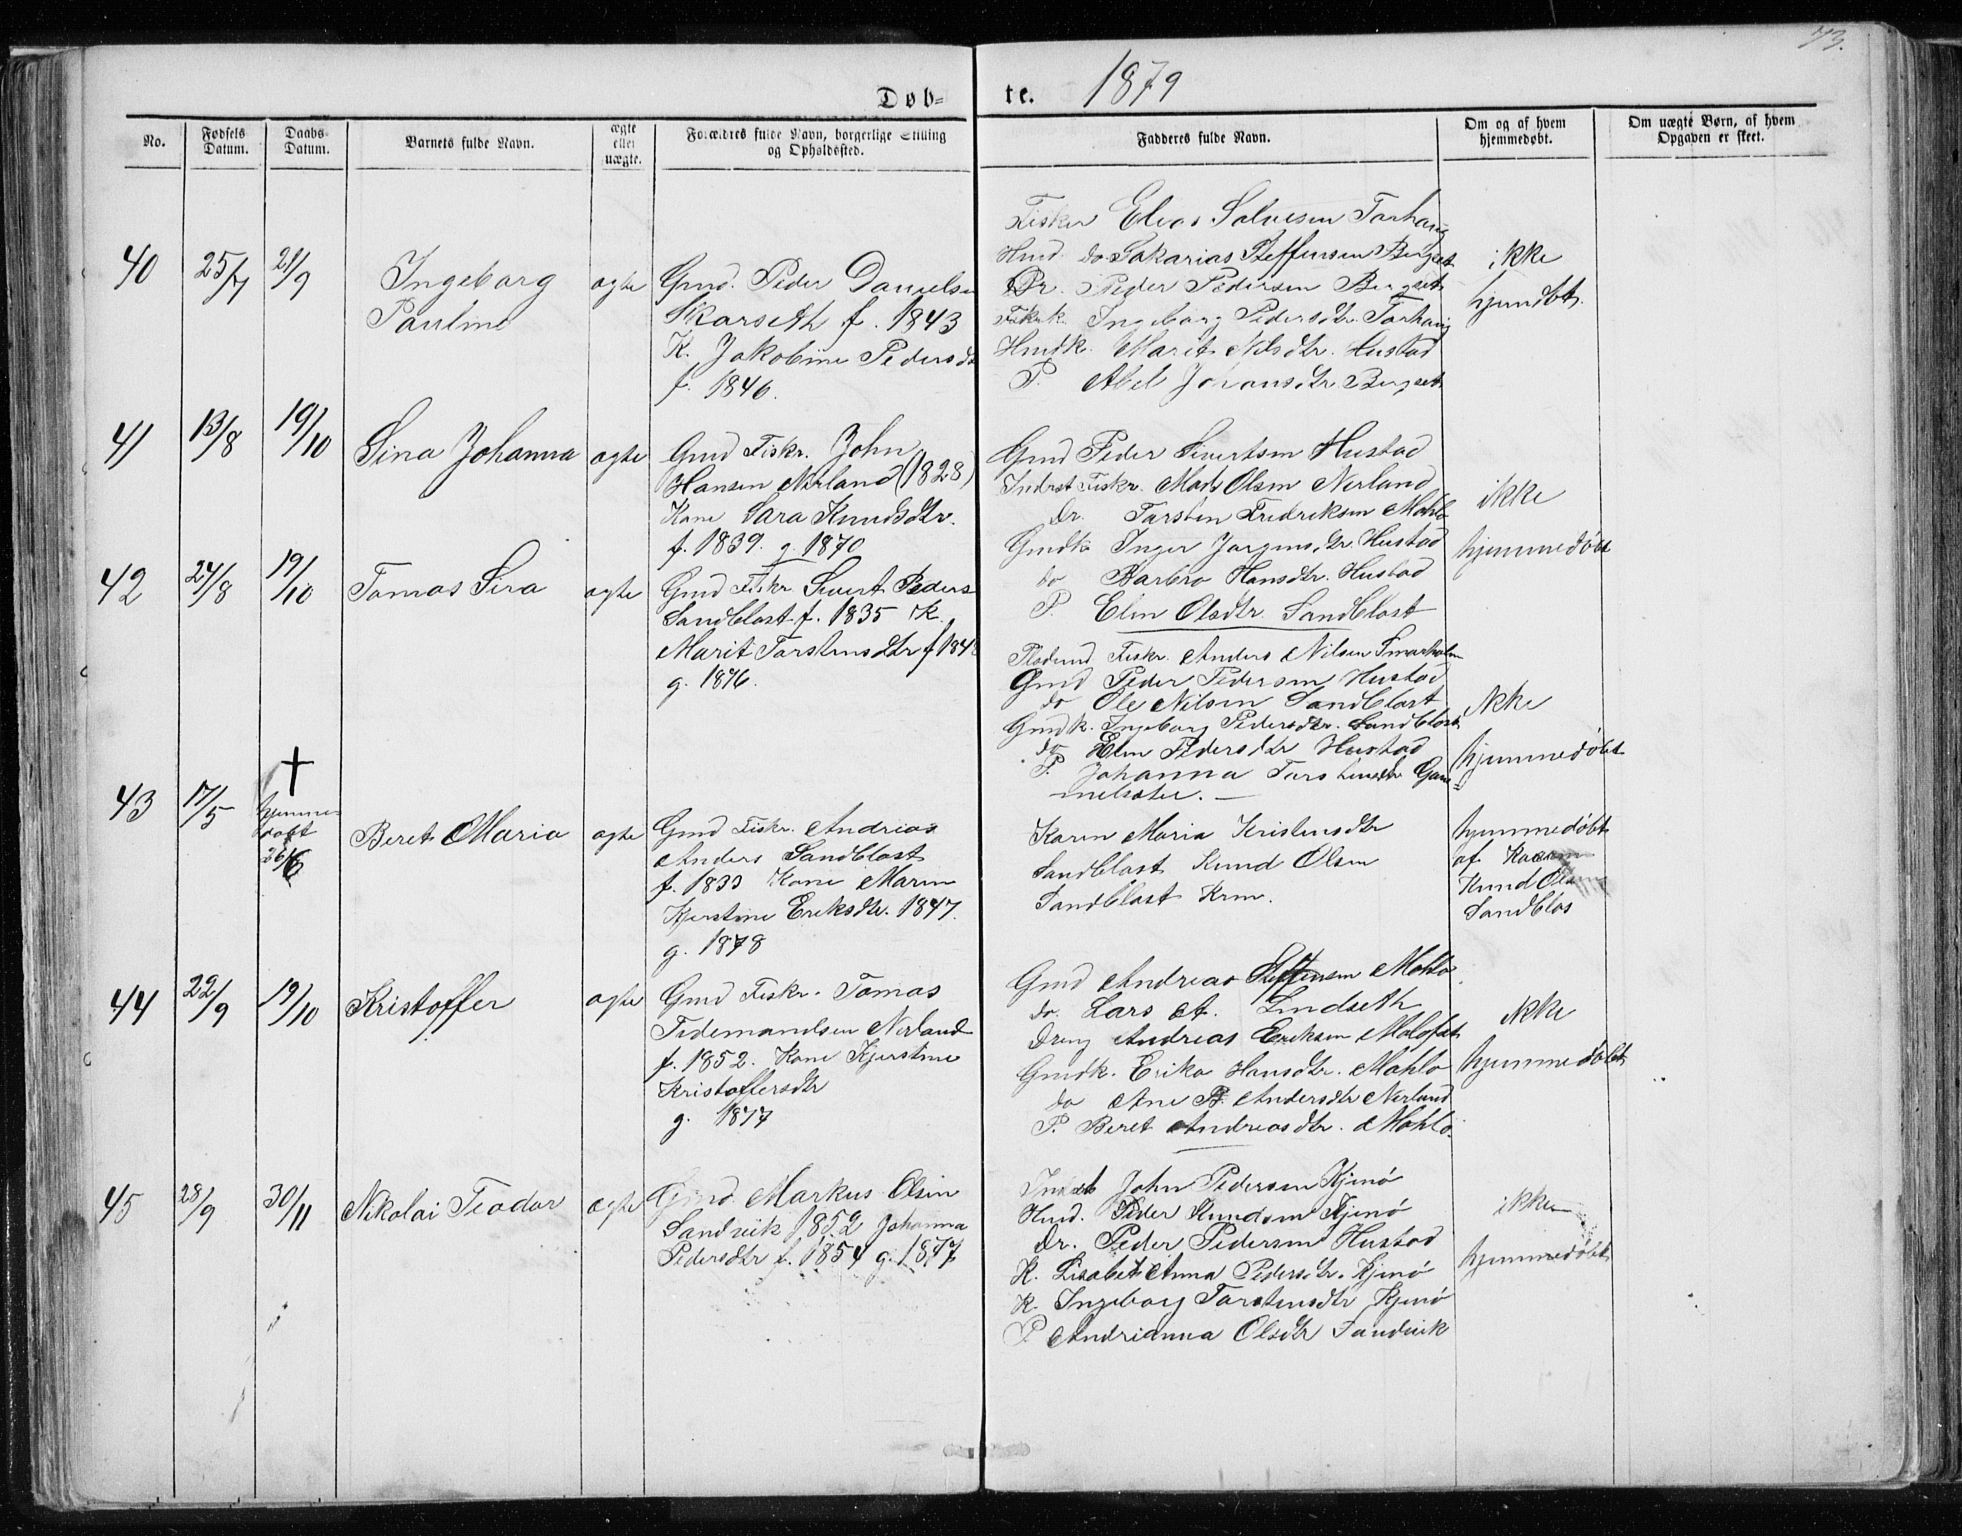 73.
Døb=
te. 1879
No.
Fødsels Datum.
Daabs- Datum.
Barnets fulde Navn.
ægte eller uægte.
Forældres fulde Navn, borgerlige Stilling og Opholdssted.
Fadderes fulde Navn.
Om og af hvem hjemmedøbt.
Om uægte Børn, af hvem Opgaven er skeet.
40
25/7
21/9
Ingeborg
Pauline
ægte
Gmd. Peder Danielsen
Skarseth f. 1843
K. Jakobine Pedersdr
f. 1846.
Fisker Elias Salvesen Torhaug
Hmd do Sakarias Steffensen Bergset
Dr. Peder Pedersen Bergset
Ingeborg Pedersdtr. Torhaug
Hmdk. Marit Nilsdtr. Hustad
P. Abel Johansdtr Bergset
ikke
hjemdbt.
41
13/8
19/10
Sina Johanna
ægte
Gmd Fiskr. John
Hansen Nerland (1828)
Kone Sara Knudsdtr.
f. 1839. g. 1870
Gmd Peder Sivertsen Hustad
Inderst Fiskr. Mads Olsen Nerland
Dr. Torsten Fredriksen Mahlo
Gmdk Inger Jørgensdtr Hustad
do Barbro Hansdtr. Hustad
P. Elen Olsdtr. Sandblost
ikke
hjemmedøbt
42
24/8
19/10
Tomas Sira
ægte
Gmd Fiskr Sivert Peders
Sandblost f. 1835 K.
Marit Torstensdtr f 184
g. 1876.
Fiskr. Anders Nilsen
Gmd Peder Pedersen Hustad
do Ole Nilsen Sandblost
Gmdk. Ingeborg Pedersdtr. Sandblost
do Elen Pedersdtr Hustad
P. Johanna Torstensdtr Gam=
melsæter. —
ikke
hjemmedøbt
43
17/5
†
hjemme
døbt
26/6
Beret Maria
ægte
Gmd Fiskr. Andreas
Anders Sandblost
f. 1833 Kone Maren
Kjerstine Eriksdtr. 1847.
g. 1878
Karen Maria Kristensdtr
Sandblost Knud Olsen
Sandblost Krm.
hjemmedøbt
af
Knud Olsen
Sandblos
44
22/9
19/10
Kristoffer
ægte
Gmd Fiskr. Tomas
Tidemandsen Nerland
f. 1852. Kone Kjerstine
Kristoffersdtr
g. 1877
Gmd Andreas Steffensen Mahlo
do. Lars A. Lindseth
Dreng Andreas Eriksen
Gmdk. Erika Hansdtr. Mahlo
do Ane B. Andersdtr Nerland
P. Beret Andreasdtr. Mahlo.
ikke
hjemmedøbt
45
28/9
30/11
Nikolai Teodor
ægte
Gmd. Markus Olsen
Sandvik 1852 Johanna
Pedersdtr f. 1854 g. 1877
John Pedersen Kjenø
Hmd. Peder Knudsen Kjenø
Dr. Peder Pedersen Hustad
K. Lisabet Anna Pedersdtr. Kjenø
K. Ingeborg Torstensdtr Kjenø
P Andrianna Olsdtr Sandvik
ikke
hjemmedøbt